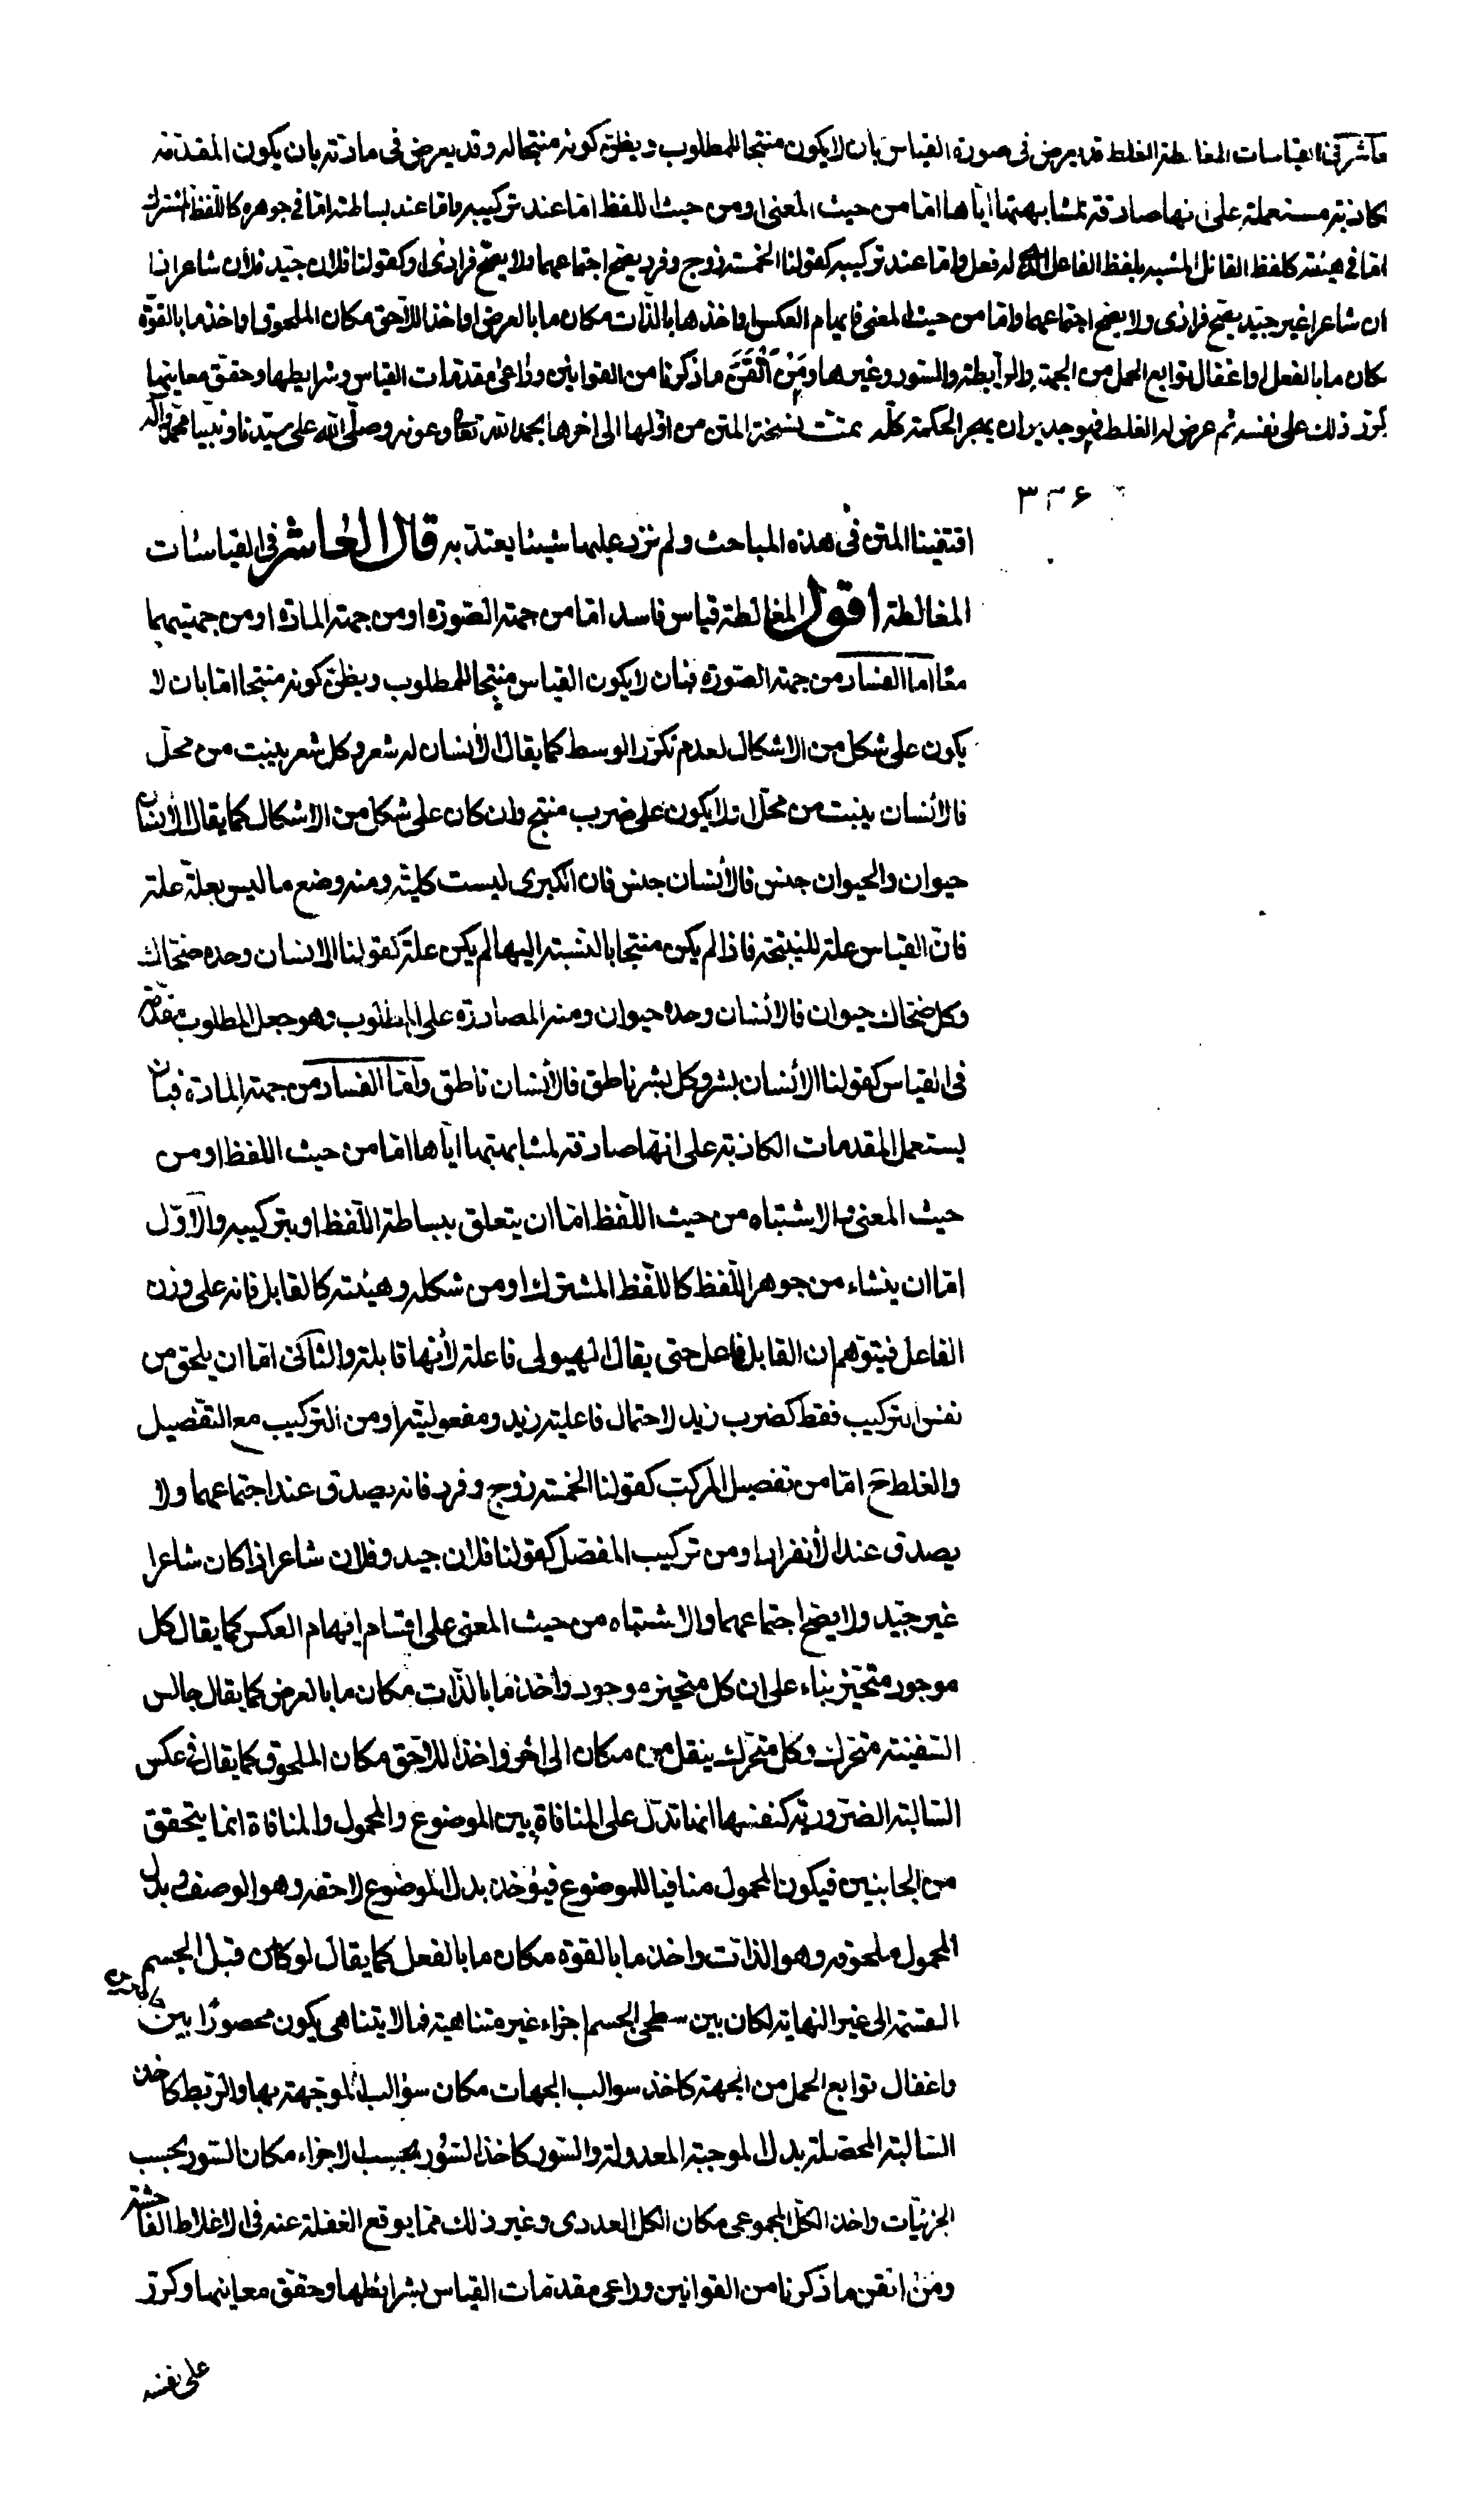 العاشر فى القياسات المغالطة الغلط قد يعرض فى صورة القياس بان لا يكون منتجا للمطلوب ويظن كونه منتجا له وقد يعرض فى مادته بان يكون المقدمة
كاذبة مستعملة على انها صادقة لمشابهتها اياها اما من حيث المعنى او من حيث اللفظ اما عند تركيبه واما عند بساطته اما فى جوهره كاللفظ المشترك
اما فى هيئته كلفظ القائل المشبه بلفظ الفاعل له فعل واما عند تركيبه كقولنا الخمسة زوج وفرد يصح اجتماعهما ولا يصح فرادى او كقولنا فلان جيد فلان شاعر اذا
ان شاعرا غير جيد يصح فرادى ولا يصح اجتماعهما واما من حيث المعنى فايهام العكس واخذ ما بالذات مكان ما بالعرض او اخذ اللاحق مكان الملحوق او اخذ ما بالقوة
مكان ما بالفعل او اغفال توابع الحمل من الجهة والرابطة والسور وغيرها ومن اتقن ما ذكرنا من القوانين وراعى مقدمات القياس وشرايطها وحقق معاينها
كرر ذلك على نفسه ثم عرض له الغلط فهو جدير بان يهجر الحكمة كله تمت نسخة المتن من اولها الى اخرها بحمد الله تعالى وعونه وصلى الله على سيدنا ونبينا محمد وآله
اقتفينا المتن فى هذه المباحث ولم نزد عليها شيئا يعتد به قال العاشر فى القياسات
المغالطة اقول المغالطة قياس فاسد اما من جهة الصورة او من جهة المادة او من جهتيهما
معا اما الفساد من جهة الصورة فبان لا يكون القياس منتجا للمطلوب ويظن كونه منتجا اما بان لا
يكون على شكل من الاشكال لعدم تكرر الوسط كما يقال الأنسان له شعر وكل شعر ينبت من محل
فالأنسان ينبت من محل او لا يكون على ضرب منتج وان كان على شكل من الاشكال كما يقال الأنسان
حيوان والحيوان جنس فالأنسان جنس فان الكبرى ليست كلية ومنه وضع ما ليس بعلة علة
فان القياس علة للنتيجة فاذا لم يكن منتجا بالنسبة اليها لم يكن علة كقولنا الانسان وحده ضحاك
وكل ضحاك حيوان فالأنسان وحده حيوان ومنه المصادرة على المطلوب وهو جعل المطلوب مقدمة
فى القياس كقولنا الأنسان بشر وكل بشر ناطق فالأنسان ناطق واما الفساد من جهة المادة فبان
يستعمل المقدمات الكاذبة على انها صادقة لمشابهتها اياها اما من حيث اللفظ او من
حيث المعنى والاشتباه من حيث اللفظ اما ان يتعلق ببساطة اللفظ او بتركيبه والاول
اما ان ينشاء من جوهر اللفظ كاللفظ المشترك او من شكله وهيئته كالقابل فانه على وزن
الفاعل فيتوهم ان القابل فاعل حتى يقال الهيولى فاعلة لأنها قابلة والثانى اما ان يلحق من
نفس التركيب فقط كضرب زيد لاحتمال فاعلية زيد ومفعوليته او من التركيب مع التفصيل
والغلط ح اما من تفصيل المركب كقولنا الخمسة زوج وفرد فانه يصدق عند اجتماعهما ولا
يصدق عند الأنفراد او من تركيب المفصل كقولنا فلان جيد وفلان شاعر اذا كان شاعرا
غير جيد ولا يصح اجتماعهما والاشتباه من حيث المعنى على اقسام ايهام العكس كما يقال كل
موجود متحيز بناء على ان كل متحيز موجود واخذ ما بالذات مكان ما بالعرض كما يقال جالس
السفينة متحرك وكل متحرك ينقل من مكان الى اخر واخذ اللاحق مكان الملحوق كما يقال فى عكس
السالبة الضرورية كنفسها انما تدل على المنافاة بين الموضوع والمحمول والمنافاة انما يتحقق
من الجانبين فيكون المحمول منافيا للموضوع فيؤخذ بدل الموضوع لاحقه وهو الوصف وبدل
المحمول ملحوقه وهو الذات واخذ ما بالقوة مكان ما بالفعل كما يقال لو كان قبل الجسم
القسمة الى غير النهاية لكان بين سطحى الجسم اجزاء غير متناهية فما لا يتناهى يكون محصورا بين
واغفال توابع الحمل من الجهة كاخذ سوالب الجهات مكان سؤالب الموجهة بها والربط كاخذ
السالبة المحصلة بدل الموجبة المعدولة والسور كاخذ السور بحسب الاجزاء مكان السور بحسب
الجزئيات واخذ الكل المجموعى مكان الكل العددى وغير ذلك مما يوقع الغفلة عنه فى الاغلاط الفاحشة
ومن اتقن ما ذكرنا من القوانين وراعى مقدمات القياس بشرائطها وحقق معاينها وكرر
على نفسه